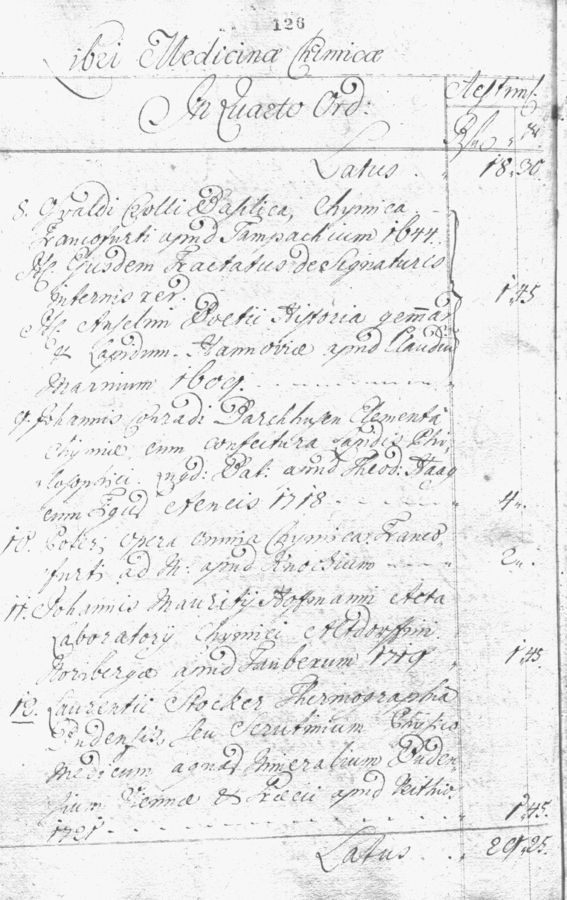 126
Libri Medicinæ Chimicæ
In Quarto Ord:
Aestim:
Rfl. xr
Latus 18. 30.
8. Osvaldi Crolli Basilica, Chymica
Francofurti apud Tampachium 1644.
It. Ejusdem Tractatus de Signaturis
internis rer. 1. 45
It. Anselmi Boetii Historia gemar
& Lapidum. Hannoviæ apud Claudiu
Marnium 1609.
9. Johannis Conradi Barchhusen Elementa
Chymiæ, cum confectura Lapidis Phi,
losophici. Lugd: Bat: apud Theod: Haag
cum Figuris Aeneis 1718 4.
10. Poterii opera omnia Chymica Franco
furti ad M: apud 2.
11. Johannis Mauritij Hoffmanni Acta
Laboratorij Chymici Altdorffini
Noribergæ apud Tauberum 1719 1. 45
12. Laurentii Stocker Thermographia
Budensis, seu Scrutinium Physico
Medicum aquar Mineralium Buden,
sium Viennæ & apud
1721 1. 45.
Latus 29. 25.